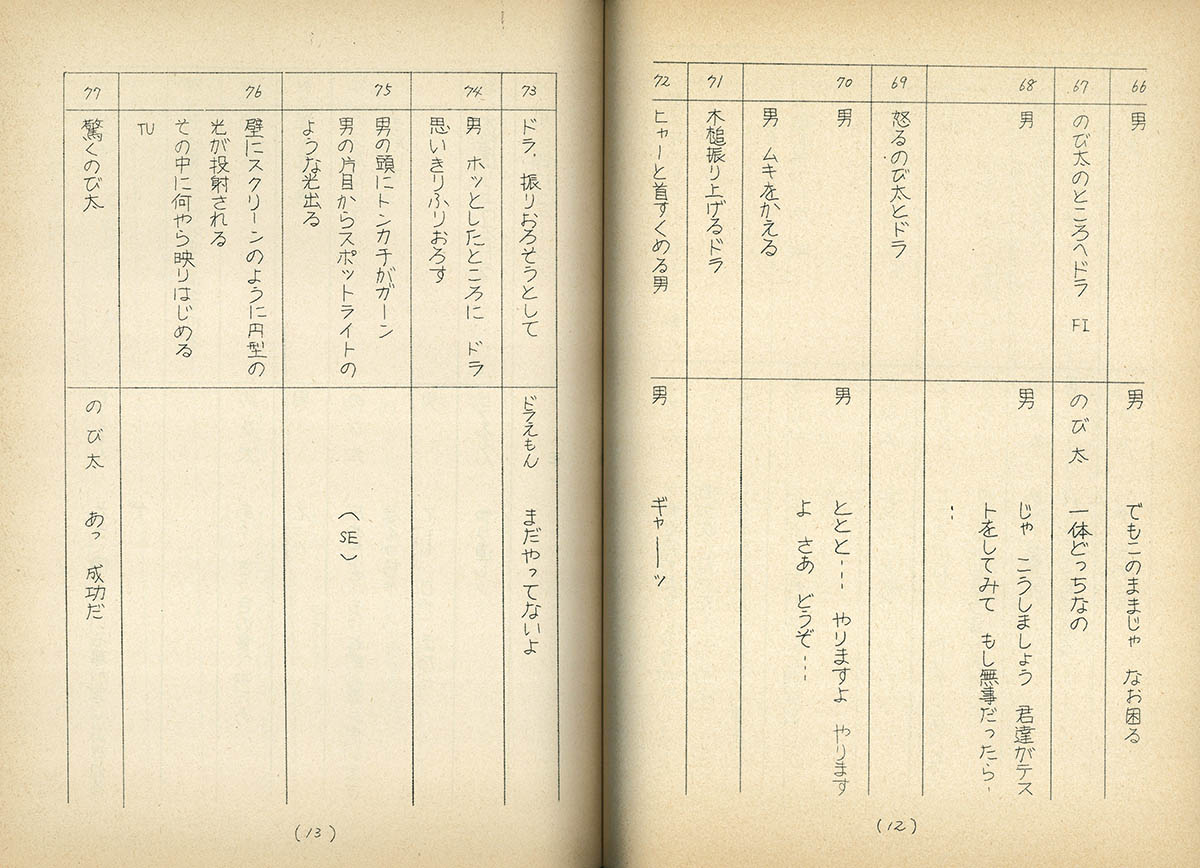 66
男
男
でもこのままじゃ なお困る
67
のび太のところへドラ FI
のび太
一体どっちなの
68
男
男
じゃ こうしましょう 君達がテス
トをしてみて もし無事だったら・
‥
69
怒るのび太とドラ
70
男
男 ムキをかえる
男
ととと… やりますよ やります
よ さあ どうぞ…
71
木槌振り上げるドラ
72
ヒャーと首すくめる男
男
ギャーッ
(12)
73
ドラ、振りおろそうとして
ドラえもん
まだやってないよ
74
男 ホッとしたところに ドラ
思いきりふりおろす
75
男の頭にトンカチがガーン
男の片目からスポットライトの
ような光出る
(SE)
76
壁にスクリーンのように円型の
光が投射される
その中に何やら映りはじめる
TU
77
驚くのび太
のび太
あっ 成功だ
(13)